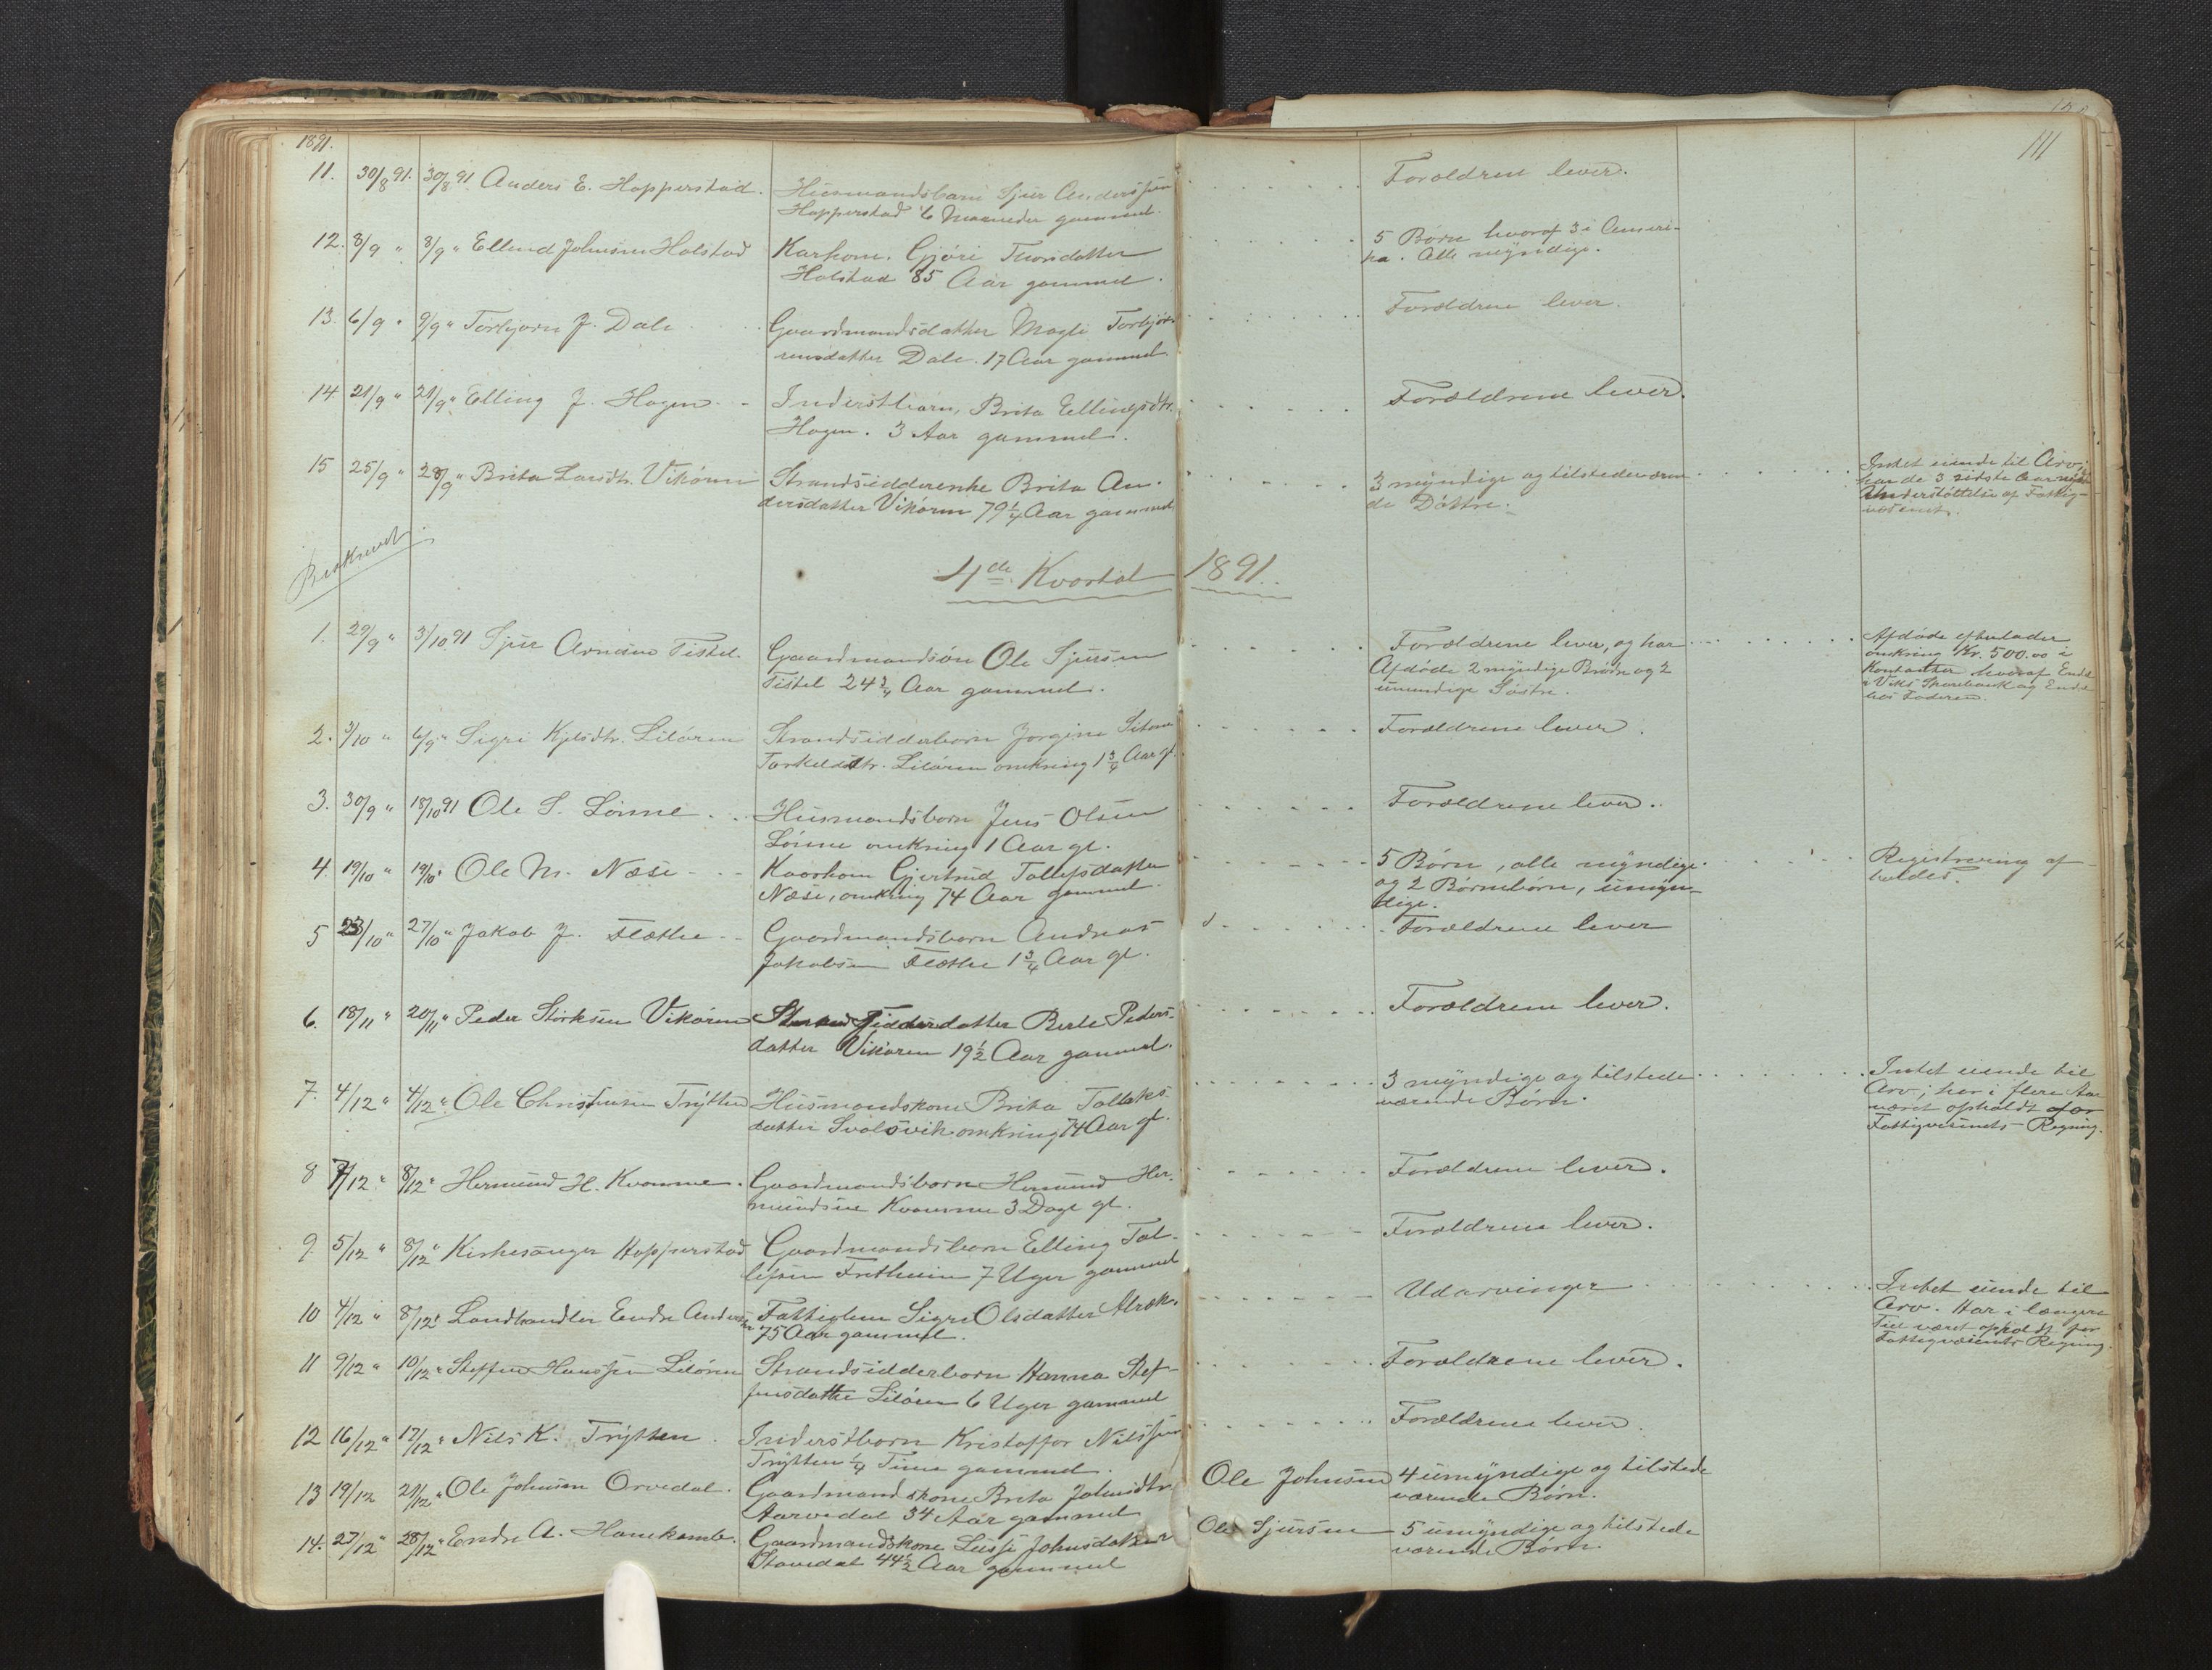 1891.
111
11. 30/8 91. 30/8 91 Anders E. Hopperstad. Husmandsbarn Sjur Anderssen Forældrene lever.
Hopperstad 6 Maaneder gammel.
12. 8/9 " 8/9 " Ellend Johnsen Holstad Karkone. Gjøri Thorsdatter 5 Børn hvoraf 3 i Ameri-
Holstad 85 Aar gammel. ka. Alle myndige.
13. 6/9 " 9/9 " Torbjørn J. Dale Gaardmandsdatter Magli Torbjør- Forældrene lever.
nsdatter Dale. 17 Aar gammel.
14 21/9 " 21/9 " Elling J. Hagen Inderstbarn, Brita Ellingsdtr. Forældrene lever.
Hagen. 3 Aar gammel.
15 25/9 " 28/9 " Brita Larsdtr. Vikøren Strandsidderenke Brita An- 3 myndige og tilstedeværen- Intet eiende til Arv;
dersdatter Vikøren 79 1/4 Aar gammel de Døttre. har de 3 sidste Aar
Understøttelse af Fattig-
væsenet.
4de Kvartal 1891.
1. 29/9 " 3/10 91 Sjur Arnesen Tistel. Gaardmandsøn Ole Sjursen Forældrene lever, og har Afdøde efterlader
Tistel 24 3/4 Aar gammel. Afdøde 2 myndige Brødre og 2 omkring Kr. 500.00 i
umyndige Søstre. Kontanter hvoraf Ende
i Viks Sparebank og Ende
hos Faderen.
2. 3/10 " 6/9 " Sigri Kjelsdtr. Liløren Strandsidderbarn Jorgine Forældrene lever.
Torkeldsdtr. Liløren omkring 1 3/4 Aar gl.
3. 30/9 " 18/10 91 Ole S. Lønne Husmandsbarn Jens Olsen Forældrene lever.
Lønne omkring 1 Aar gl.
4. 19/10 " 19/10 " Ole M. Næse Kaarkone Gjertrud Tollefsdatter 5 Børn, alle myndige. Registrering af-
Næse, omkring 74 Aar gammel. og 2 Børnebørn, umyn- holdes.
dige.
5 23/10 " 27/10 " Jakob J. Flæthe Gaardmandsbarn Andreas Forældrene lever
Jakobsen Flæthe 1 3/4 Aar gl.
6. 18/11 " 20/11 " Peder Størksen Vikøren Strandsidderdatter Berte Peders- Forældrene lever.
datter Vikøren 19 1/2 Aar gammel.
7. 4/12 " 4/12 " Ole Christensen Trytten Husmandskone Brita Tollaks- 3 myndige og tilstede Intet eiende til
datter Svolsvik omkring 74 Aar gl. værende Børn. Arv; har i flere Aar
været opholdt for
Fattigvæsenets Regning.
8 7/12 " 8/12 " Hermund H. Kvamme. Gaardmandsbarn Hermund Her- Forældrene lever.
mundsen Kvamme 3 Dage gl.
9. 5/12 " 8/12 " Kirkesanger Hopperstad Gaardmandsbarn Elling Tol- Forældrene lever.
lefsen Fretheim 7 Uger gammel
10 4/12 " 8/12 " Landhandler Endre Andersen Fattiglem Sigri Olsdatter Udarvinger Intet eiende til
75 Aar gammel. Arv. Har i længere
Tid været opholdt for
Fattigvæsenets Regning.
11 9/12 " 10/12 " Steffen Hanssen Liløren Strandsidderbarn Hanna Stef- Forældrene lever.
fensdatter Liløren 6 Uger gammel
12 16/12 " 17/12 " Nils K. Trytten. Inderstbarn Kristoffer Nilssen Forældrene lever.
Trytten 1/4 Time gammel.
13 19/12 21/12 " Ole Johnsen Orvedal. Gaardmandskone Brita Johnsdtr. Ole Johnsen 4 umyndige og tilstede
Aarvedal 34 Aar gammel værende Børn.
14. 23/12 " 28/12 " Endre A. Hanekamb. Gaardmandskone Lussi Johnsdatter Ole Sjursen 5 umyndige og tilstede
Stavedal 44 1/2 Aar gammel værende Børn.